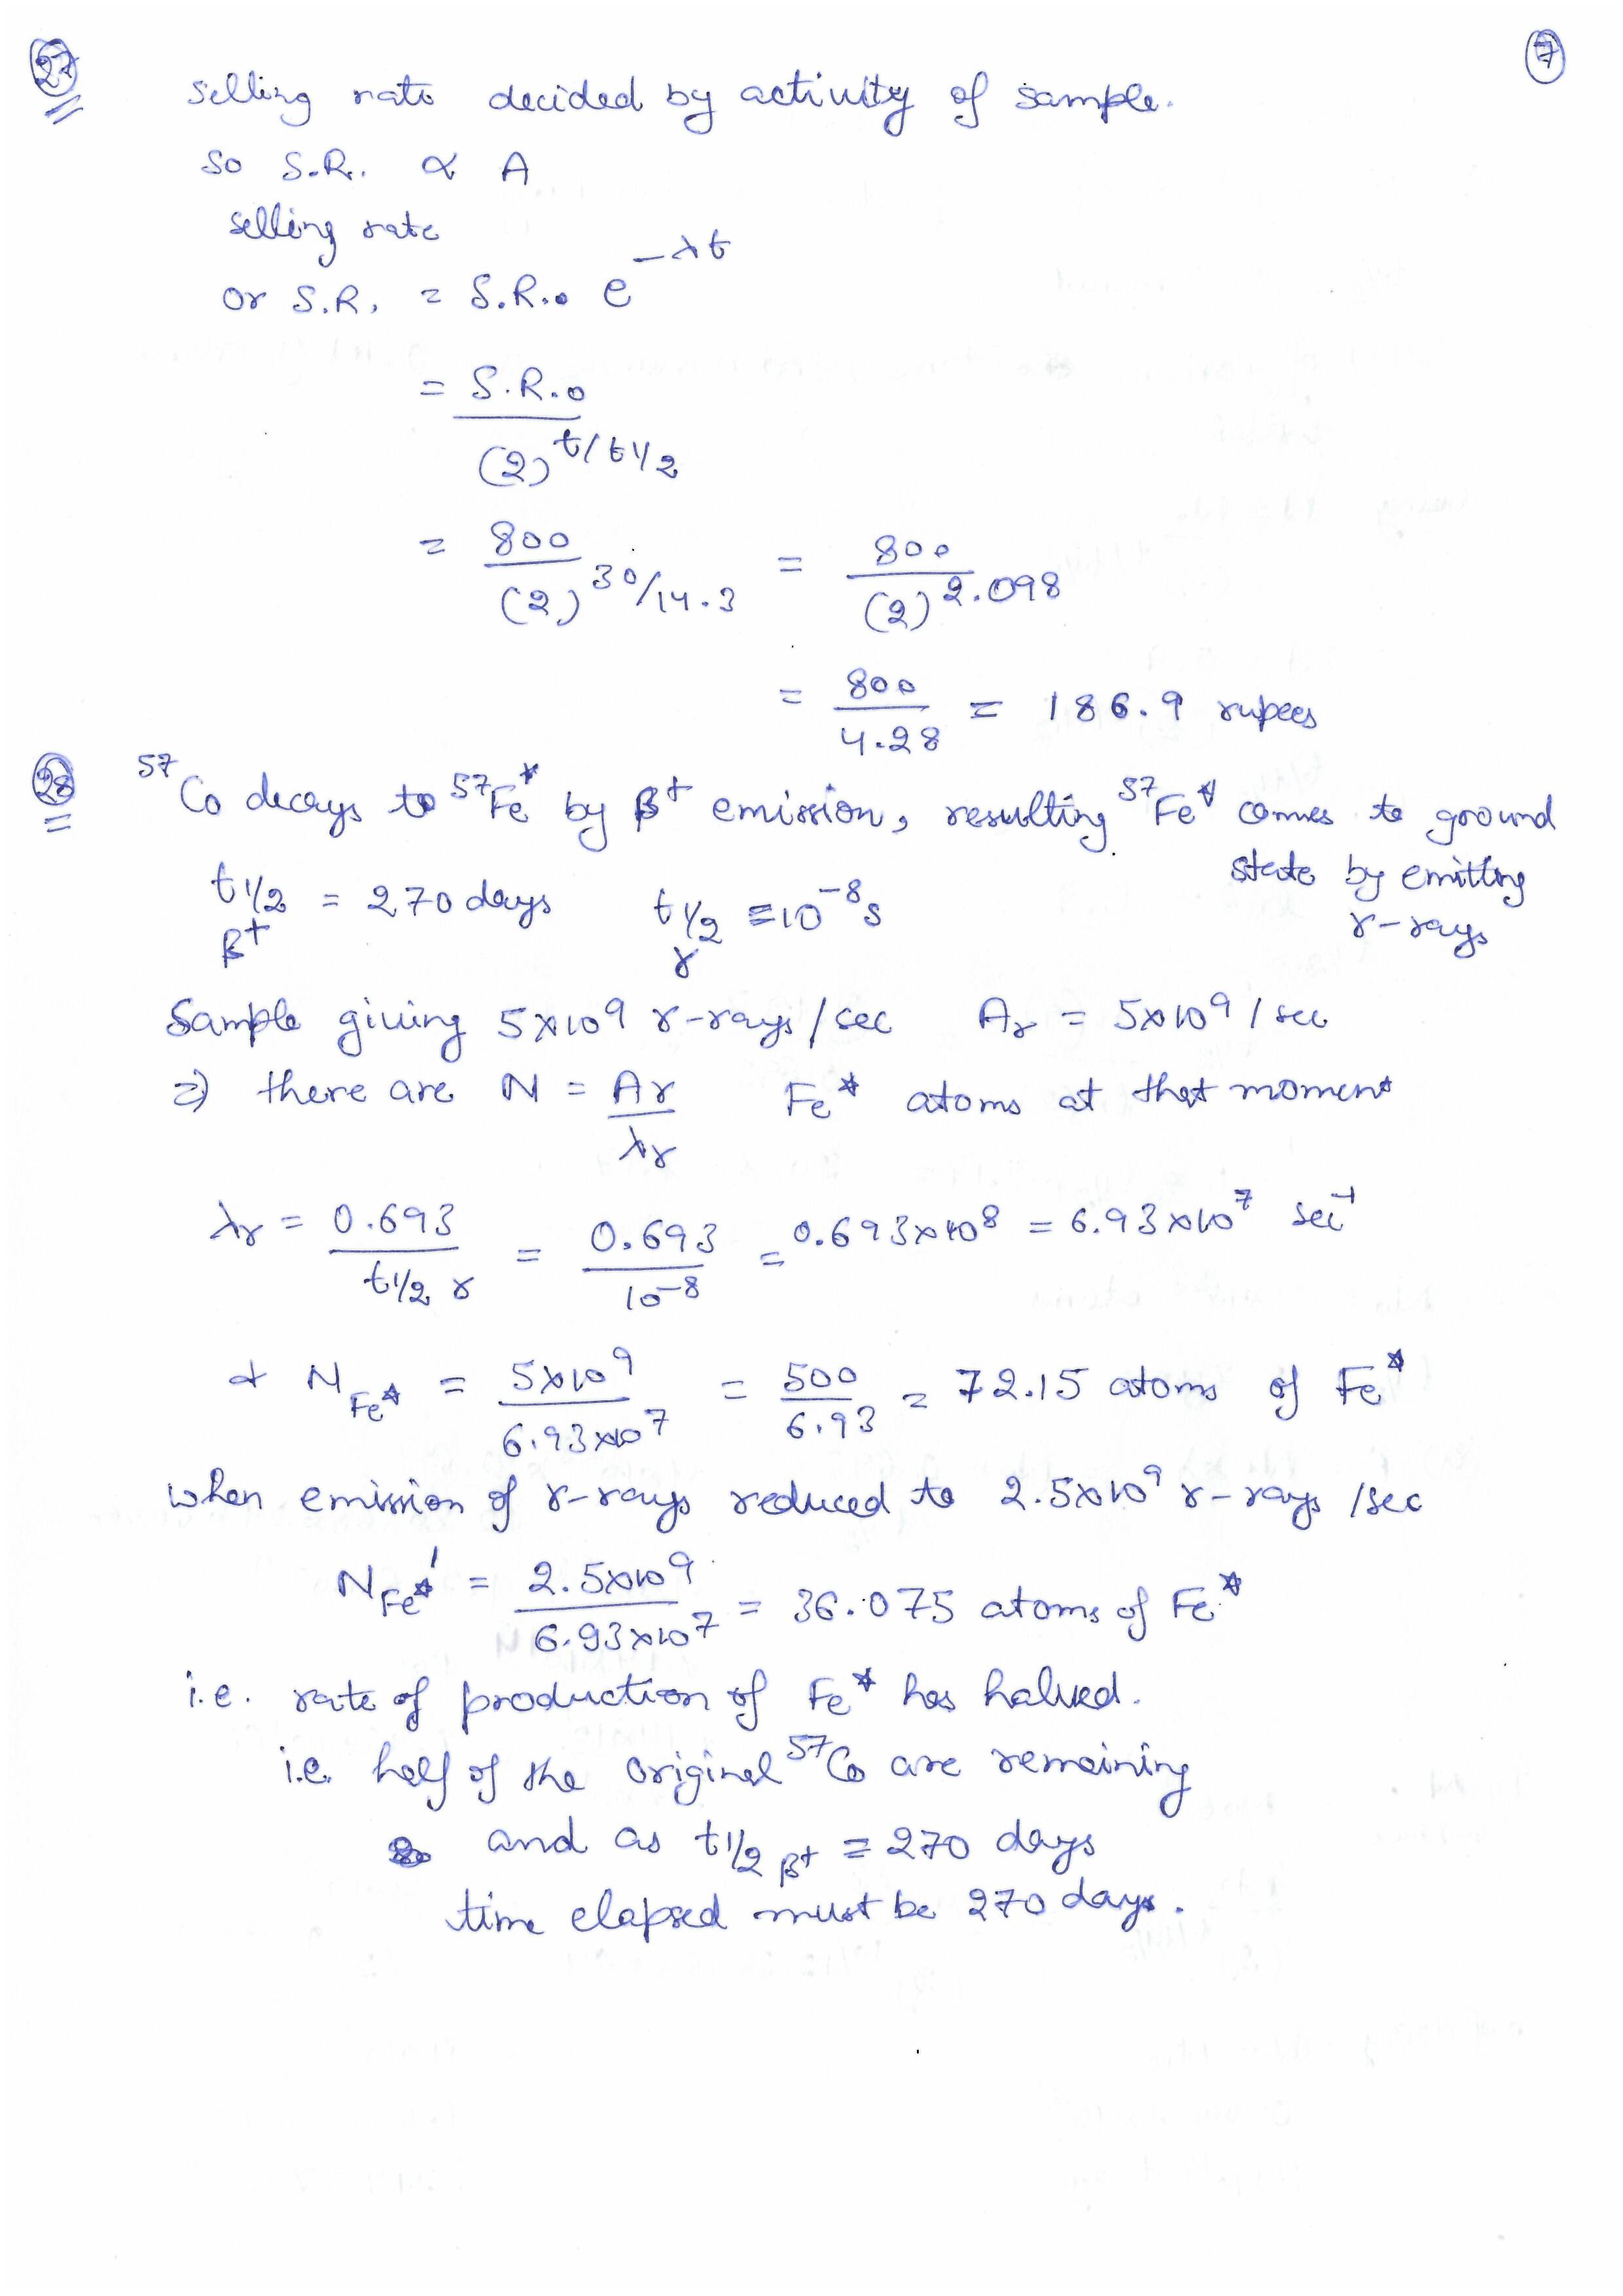 27
7
Selling rate decided by activity of sample.
So S.R. ∝ A
Selling rate
or S.R. = S.R.₀ e^{-λt}
= S.R.₀ / (2)^{t/t1/2}
= 800 / (2)^{30/14.3} = 800 / (2)^{2.098}
= 800 / 4.28 = 186.9 rupees
28
⁵⁷Co decays to ⁵⁷Fe* by β⁺ emission, resulting ⁵⁷Fe* comes to ground
state by emitting
γ-rays
t1/2 β⁺ = 270 days t1/2 γ = 10⁻⁸ s
Sample giving 5×10⁹ γ-rays/sec Aγ = 5×10⁹ / sec
⇒ there are N = Aγ / λγ Fe* atoms at that moment
λγ = 0.693 / t1/2 γ = 0.693 / 10⁻⁸ = 0.693×10⁸ = 6.93×10⁷ sec⁻¹
& N Fe* = 5×10⁹ / 6.93×10⁷ = 500 / 6.93 = 72.15 atoms of Fe*
when emission of γ-rays reduced to 2.5×10⁹ γ-rays /sec
N Fe*' = 2.5×10⁹ / 6.93×10⁷ = 36.075 atoms of Fe*
i.e. rate of production of Fe* has halved.
i.e. half of the original ⁵⁷Co are remaining
and as t1/2 β⁺ = 270 days
time elapsed must be 270 days.